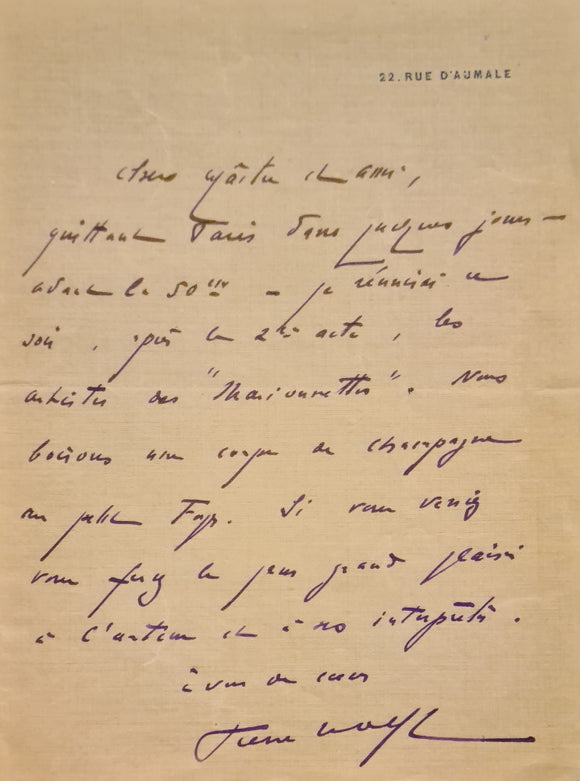 22. RUE D'AUMALE
Cher Maître et ami,
quittant Paris dans quelques jours —
avant la 50ème — je réunirai ce
soir, après le 2me acte, les
artistes des "Marionnettes". Nous
boirons une coupe de champagne
au petit Foyer. Si vous veniez
vous feriez le plus grand plaisir
à l'auteur et à ses interprètes.
à vous de cœur
Pierre Wolff